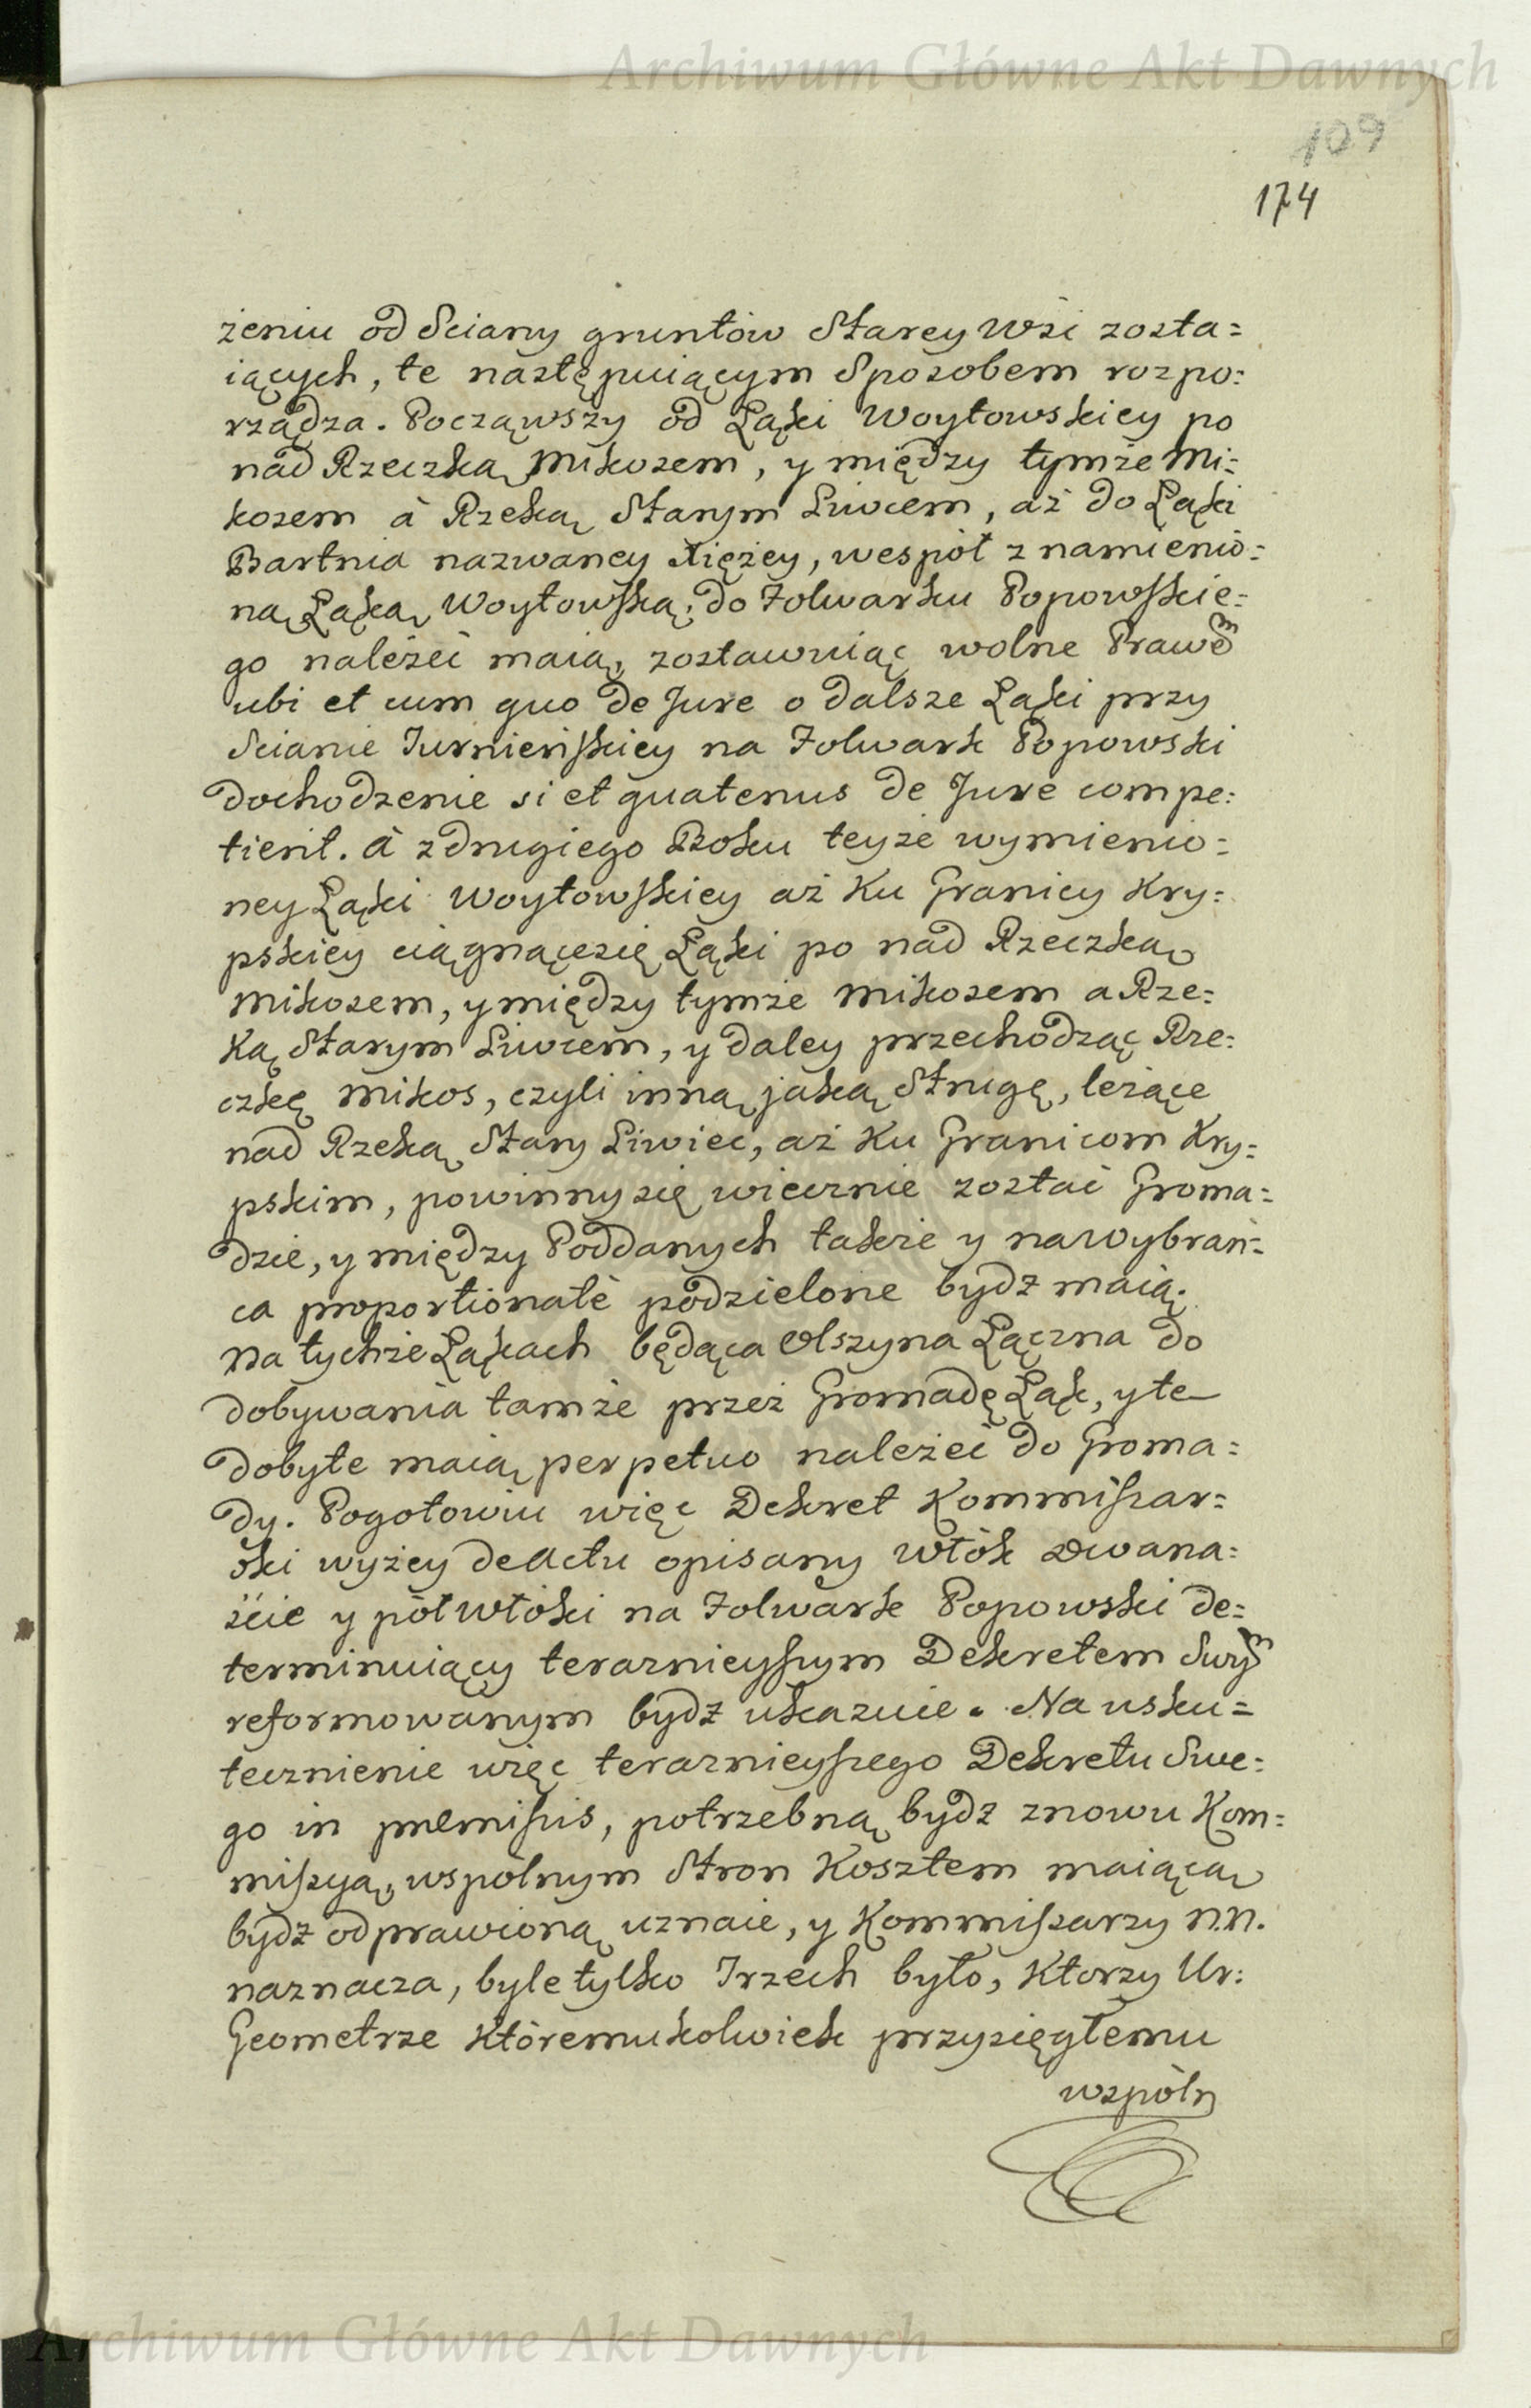 Archiwum Główne Akt Dawnych
109
174
żeniu od Sciany gruntów Starey Wsi zosta=
iących, te następuiącym Sposobem rozpo=
rządza. Począwszy od Łąki Woytowskiey po
nad Rzeczką Mikosem, y między tymże Mi=
kosem à Rzeką Starym Liwcem, aż do Łąki
Bartnia nazwaney Xiężey, wespół z namienio=
ną Łąką Woytowską, do Folwarku Popowskie=
go należeć maią, zostawuiąc wolne Prawem
ubi et cum quo de Jure o dalsze Łąki przy
Scianie Jurnieńskiey na Folwark Popowski
dochodzenie si et quatenus de Jure compe=
tierit. à z drugiego Boku teyże wymienio=
ney Łąki Woytowskiey aż Ku Granicy Kry=
pskiey ciągnącesię Łąki po nad Rzeczką
Mikosem, y między tymże Mikosem a Rze=
Ką Starym Liwcem, y daley przechodząc Rze=
czkę Mikos, czyli inną jaką Strugę, leżące
nad Rzeką Stary Liwiec, aż Ku Granicom Kry=
pskim, powinny się wiecznie zostać Groma=
dzie, y między Poddanych także y na Wybrań=
ca proportionatè podzielone bydź maią.
Na tychże Łąkach będąca Olszyna Łączna do
dobywania tamże przez Gromadę Łąk, y te
dobyte maią perpetuo należeć do Groma=
dy. Pogotowiu więc Dekret Kommissar=
ski wyżey de Actu opisany Włók Dwana=
ście y półwłóki na Folwark Popowski de=
terminuiący teraznieyszym Dekretem Swym
reformowanym bydź ukazuie. Na usku=
tecznienie więc teraznieyszego Dekretu Swe=
go in præmissis, potrzebną bydź znowu Kom=
missyą, wspólnym Stron Kosztem maiącą
bydź odprawioną uznaie, y Kommissarzy N.N.
naznacza, byle tylko Trzech było, Którzy Ur:
Geometrze Któremukolwiek przysięgłemu
wspóln
Archiwum Główne Akt Dawnych